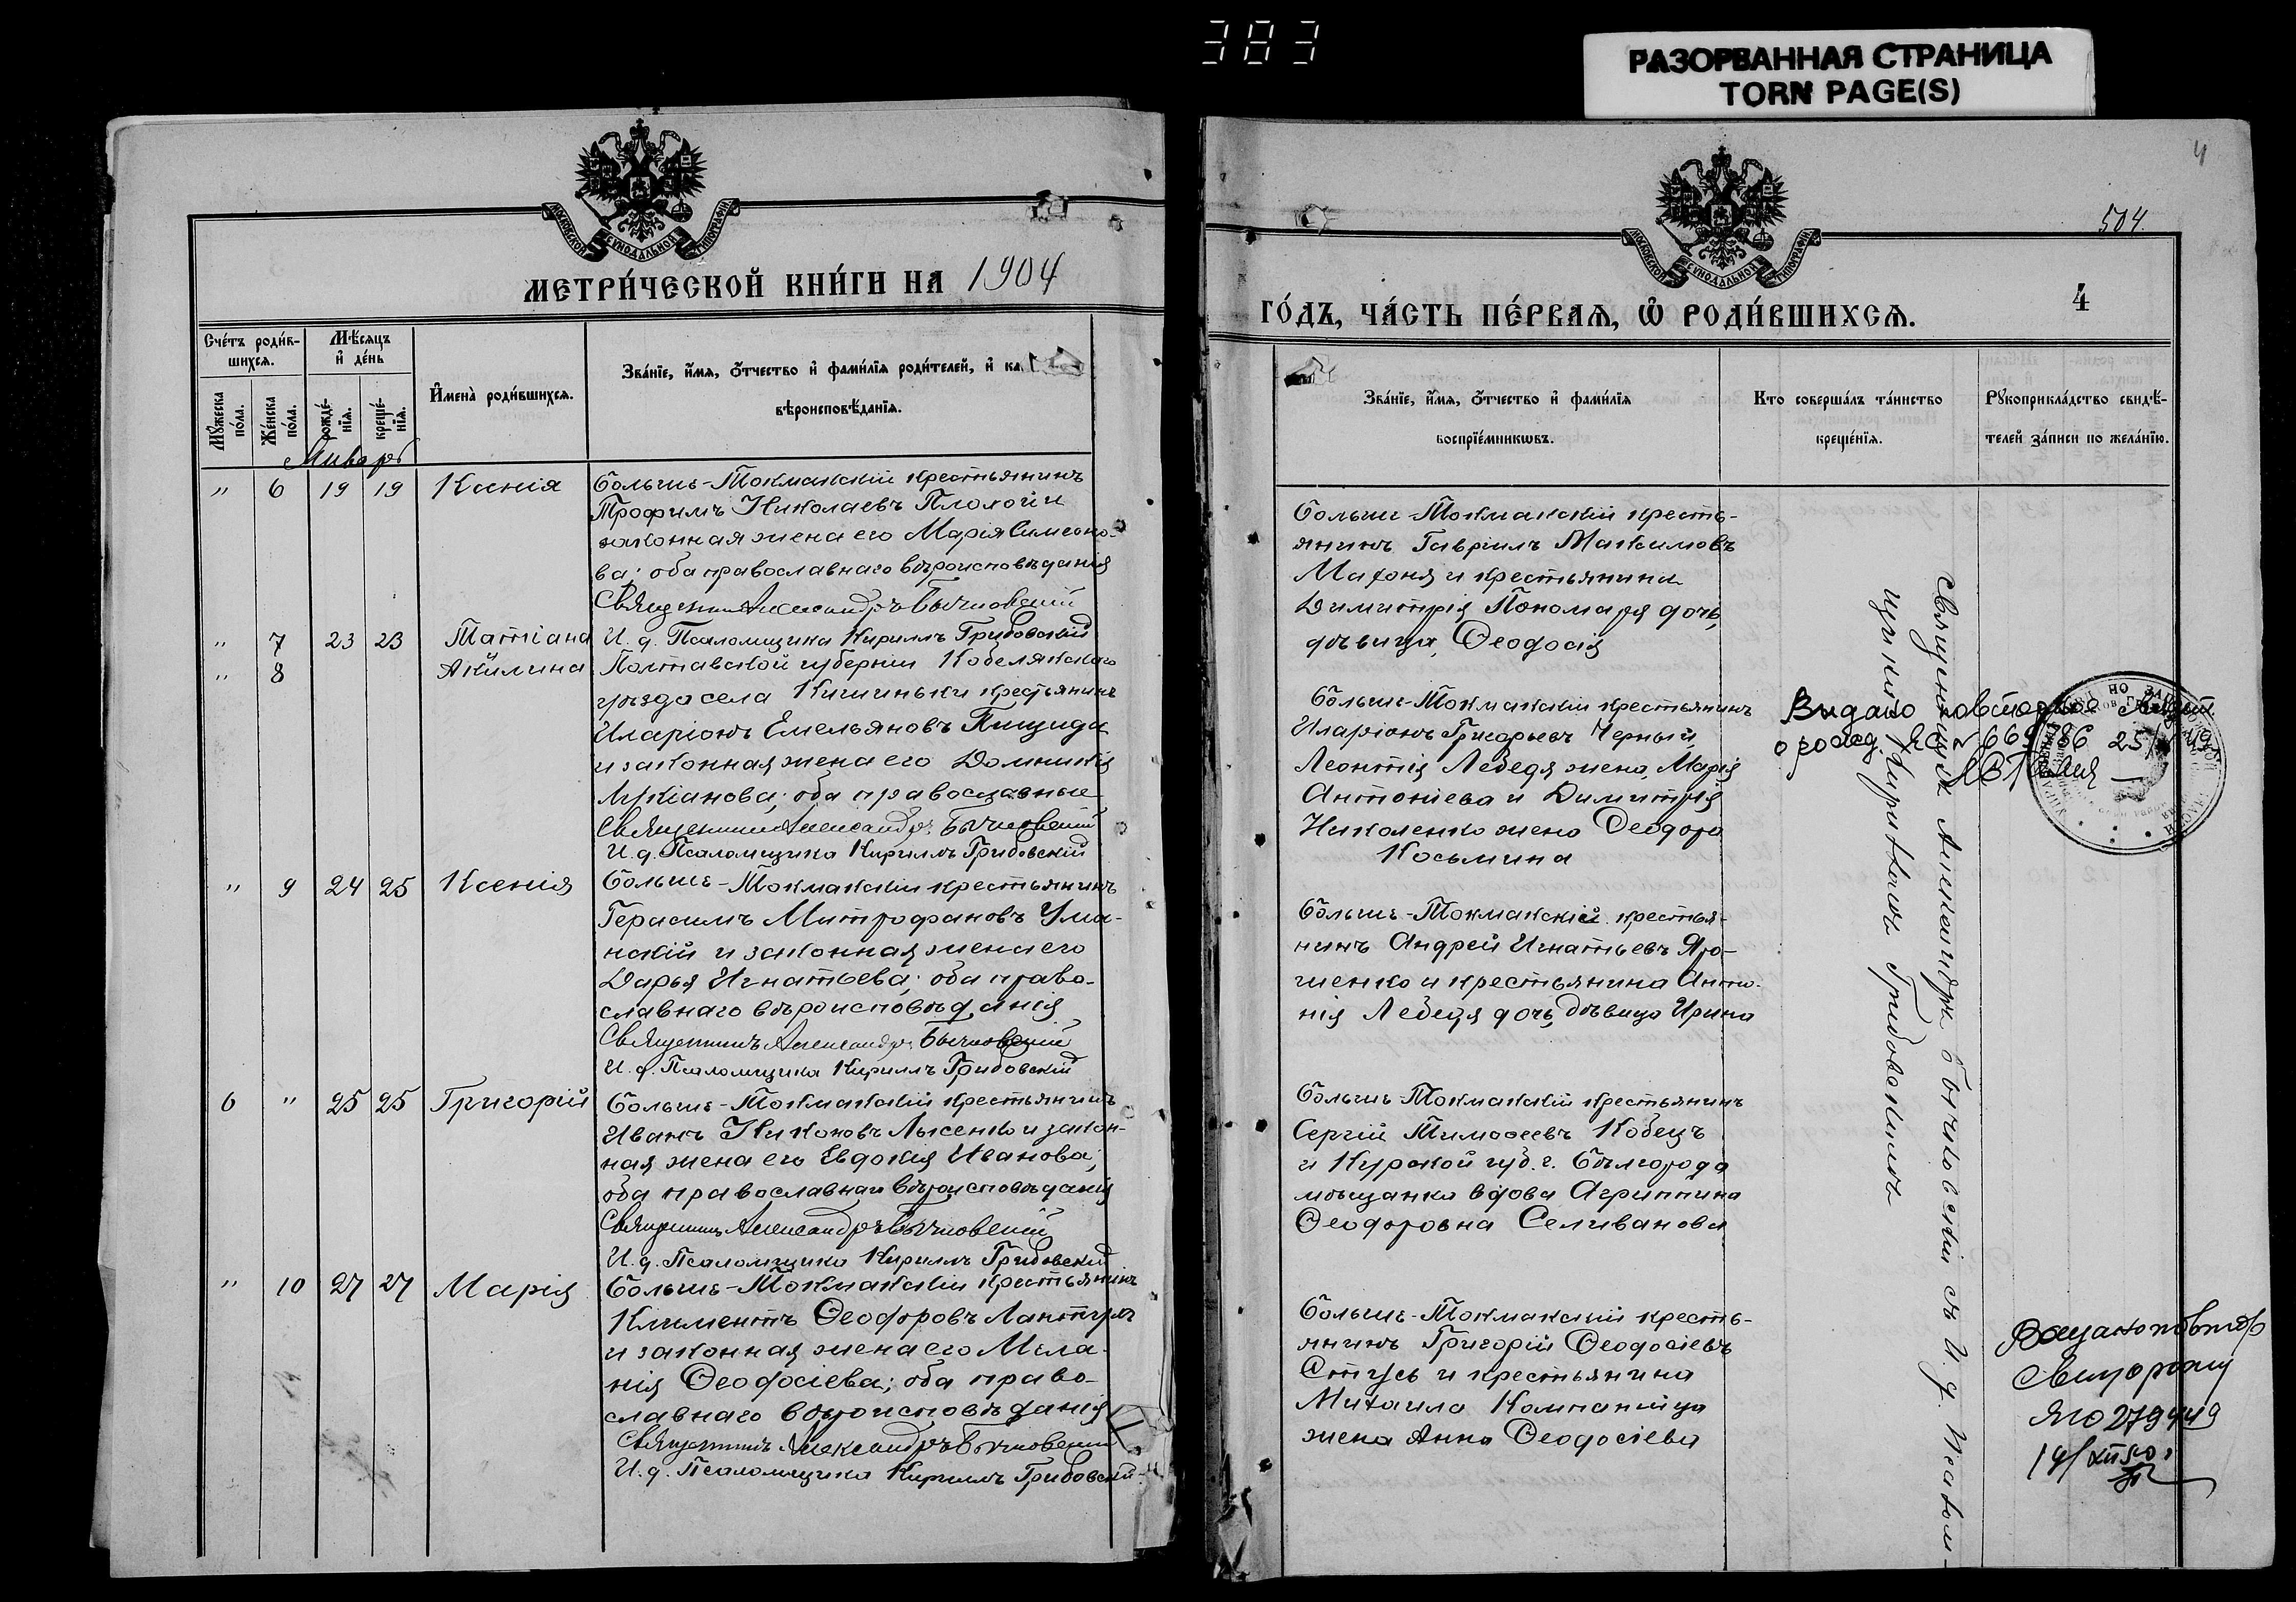 383
РАЗОРВАННАЯ СТРАНИЦА
TORN PAGE(S)
МОСКОВСКОЙ СѴНОДАЛЬНОЙ ТИПОГРАФІИ
МЕТРИ́ЧЕСКОЙ КНИ́ГИ НА 1904
Сче́тъ роди́в-
шихсѧ.
Мѣ́сѧцъ
и҆ де́нь
Мꙋ́жеска
по́ла.
Же́нска
по́ла.
рожде́-
нїѧ.
креще́-
нїѧ.
И҆мена̀ роди́вшихсѧ.
Зва́нїе, и҆́мѧ, о҆́тчество и҆ фами́лїѧ роди́телей, и҆ ка
вѣроисповѣ́данїѧ.
Январь
" 6 19 19 Ксенія Больше-Токмакскій крестьянинъ
Трофимъ Николаевъ Плохой и
законная жена его Марія Симеоно-
ва; оба православнаго вѣроисповѣданія
Священникъ Александръ Бычковскій
" 7 23 23 Татіана И. д. Псаломщика Кириллъ Грибовскій
" 8 Акилина Полтавской губерніи Кобелякскаго
уѣзда села Кишиньки крестьянинъ
Иларіонъ Емельяновъ Пищида
и законная жена его Домникія
Лукіанова; оба православные
Священникъ Александръ Бычковскій
И. д. Псаломщика Кириллъ Грибовскій
" 9 24 25 Ксенія Больше-Токмакскій крестьянинъ
Герасимъ Митрофановъ Ума-
нскій и законная жена его
Дарья Игнатьева; оба право-
славнаго вѣроисповѣданія
Священникъ Александръ Бычковскій
И. д. Псаломщика Кириллъ Грибовскій
6 " 25 25 Григорій Больше-Токмакскій крестьянинъ
Иванъ Никоновъ Лысенко и закон-
ная жена его Евдокія Иванова;
оба православнаго вѣроисповѣданія
Священникъ Александръ Бычковскій
И. д. Псаломщика Кириллъ Грибовскій
" 10 27 27 Марія Больше-Токмакскій крестьянинъ
Климентъ Ѳеодоровъ
и законная жена его Мела-
нія Ѳеодосіева; оба право-
славнаго вѣроисповѣданія
Священникъ Александръ Бычковскій
И. д. Псаломщика Кириллъ Грибовскій
4
504.
МОСКОВСКОЙ СѴНОДАЛЬНОЙ ТИПОГРАФІИ
ГО́ДЪ, ЧА́СТЬ ПЕ́РВАѦ, Ѽ РОДИ́ВШИХСѦ.
4
Зва́нїе, и҆́мѧ, о҆́тчество и҆ фами́лїѧ
воспрїе́мникѡвъ.
Кто соверша́лъ та́инство
креще́нїѧ.
Рꙋкоприкла́дство свидѣ́-
телей за́писи по жела́нїю.
Больше-Токмакскій кресть-
янинъ Гавріилъ Максимовъ
Махоня и крестьянина
Димитрія Пономаря дочь,
дѣвица Ѳеодосія
Больше-Токмакскій крестьянинъ
Иларіонъ Григорьевъ Черный,
Леонтія Лебедя жена Марія
Антоніева и Димитрія
Николенко жена Ѳеодора
Косьмина
Больше-Токмакскій крестья-
нинъ Андрей Игнатьевъ Яро-
шенко и крестьянина Анто-
нія Лебедя дочь, дѣвица Ирина
Больше-Токмакскій крестьянинъ
Сергій Тимоѳеевъ Кобецъ
и Курской губ. г. Бѣлгорода
мѣщанка вдова Агриппина
Ѳеодоровна Селиванова
Больше-Токмакскій кресть-
янинъ Григорій Ѳеодосіевъ
Стусь и крестьянина
Михаила Компанійца
жена Анна Ѳеодосіева
Священникъ Александръ Бычковскій съ И. д. Псалом-
щика Кирилломъ Грибовскимъ
Видано повторно
669186 25
279449
14/XII 50